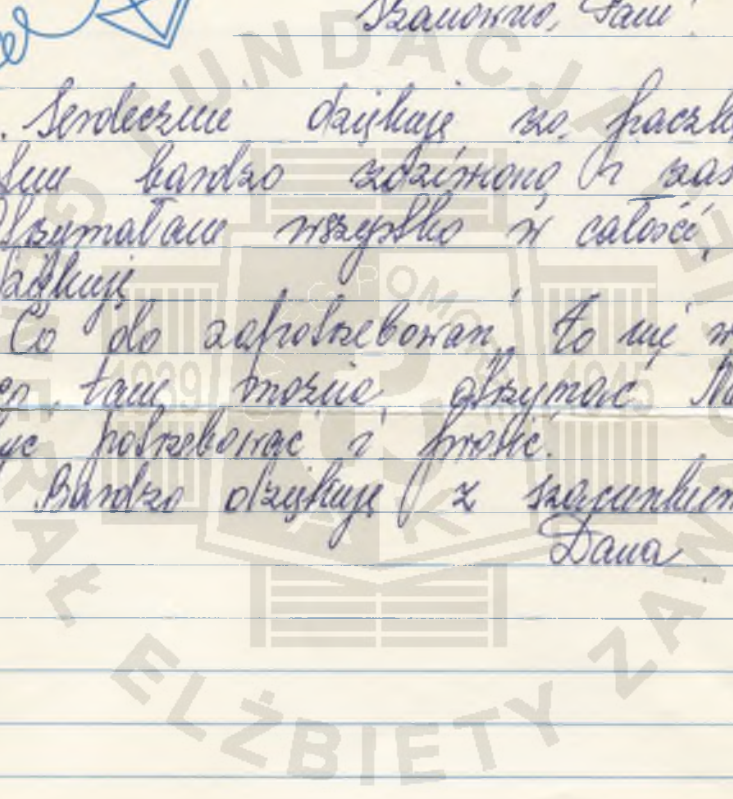 Szanowna Pani!
Serdecznie dziękuję za paczkę
bardzo zdziwiona i zas
otrzymałam wszystko w całości,
dziękuję
Co do zapotrzebowań, to nie w
tam można otrzymać. Na
potrzebować i prosić.
Bardzo dziękuję z szacunkiem
Dana
FUNDACJA
GENERAŁ ELŻBIETY ZAW
POMO
1939 1945
AK